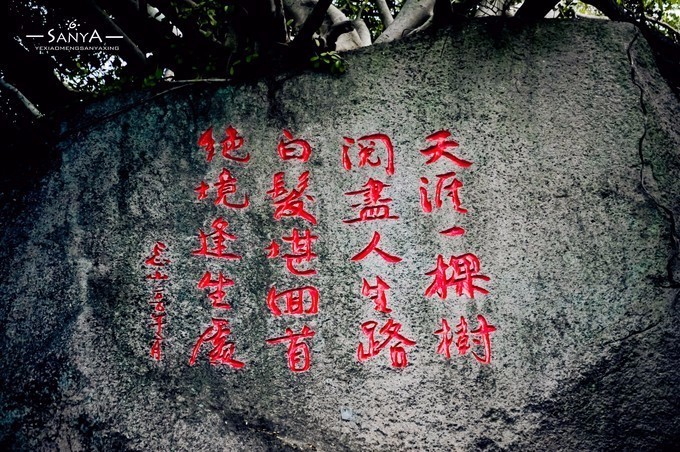 SANYA
YEXIAOMENGSANYAXING
天涯一棵樹
閱盡人生路
白髮堪回首
絕境逢生處